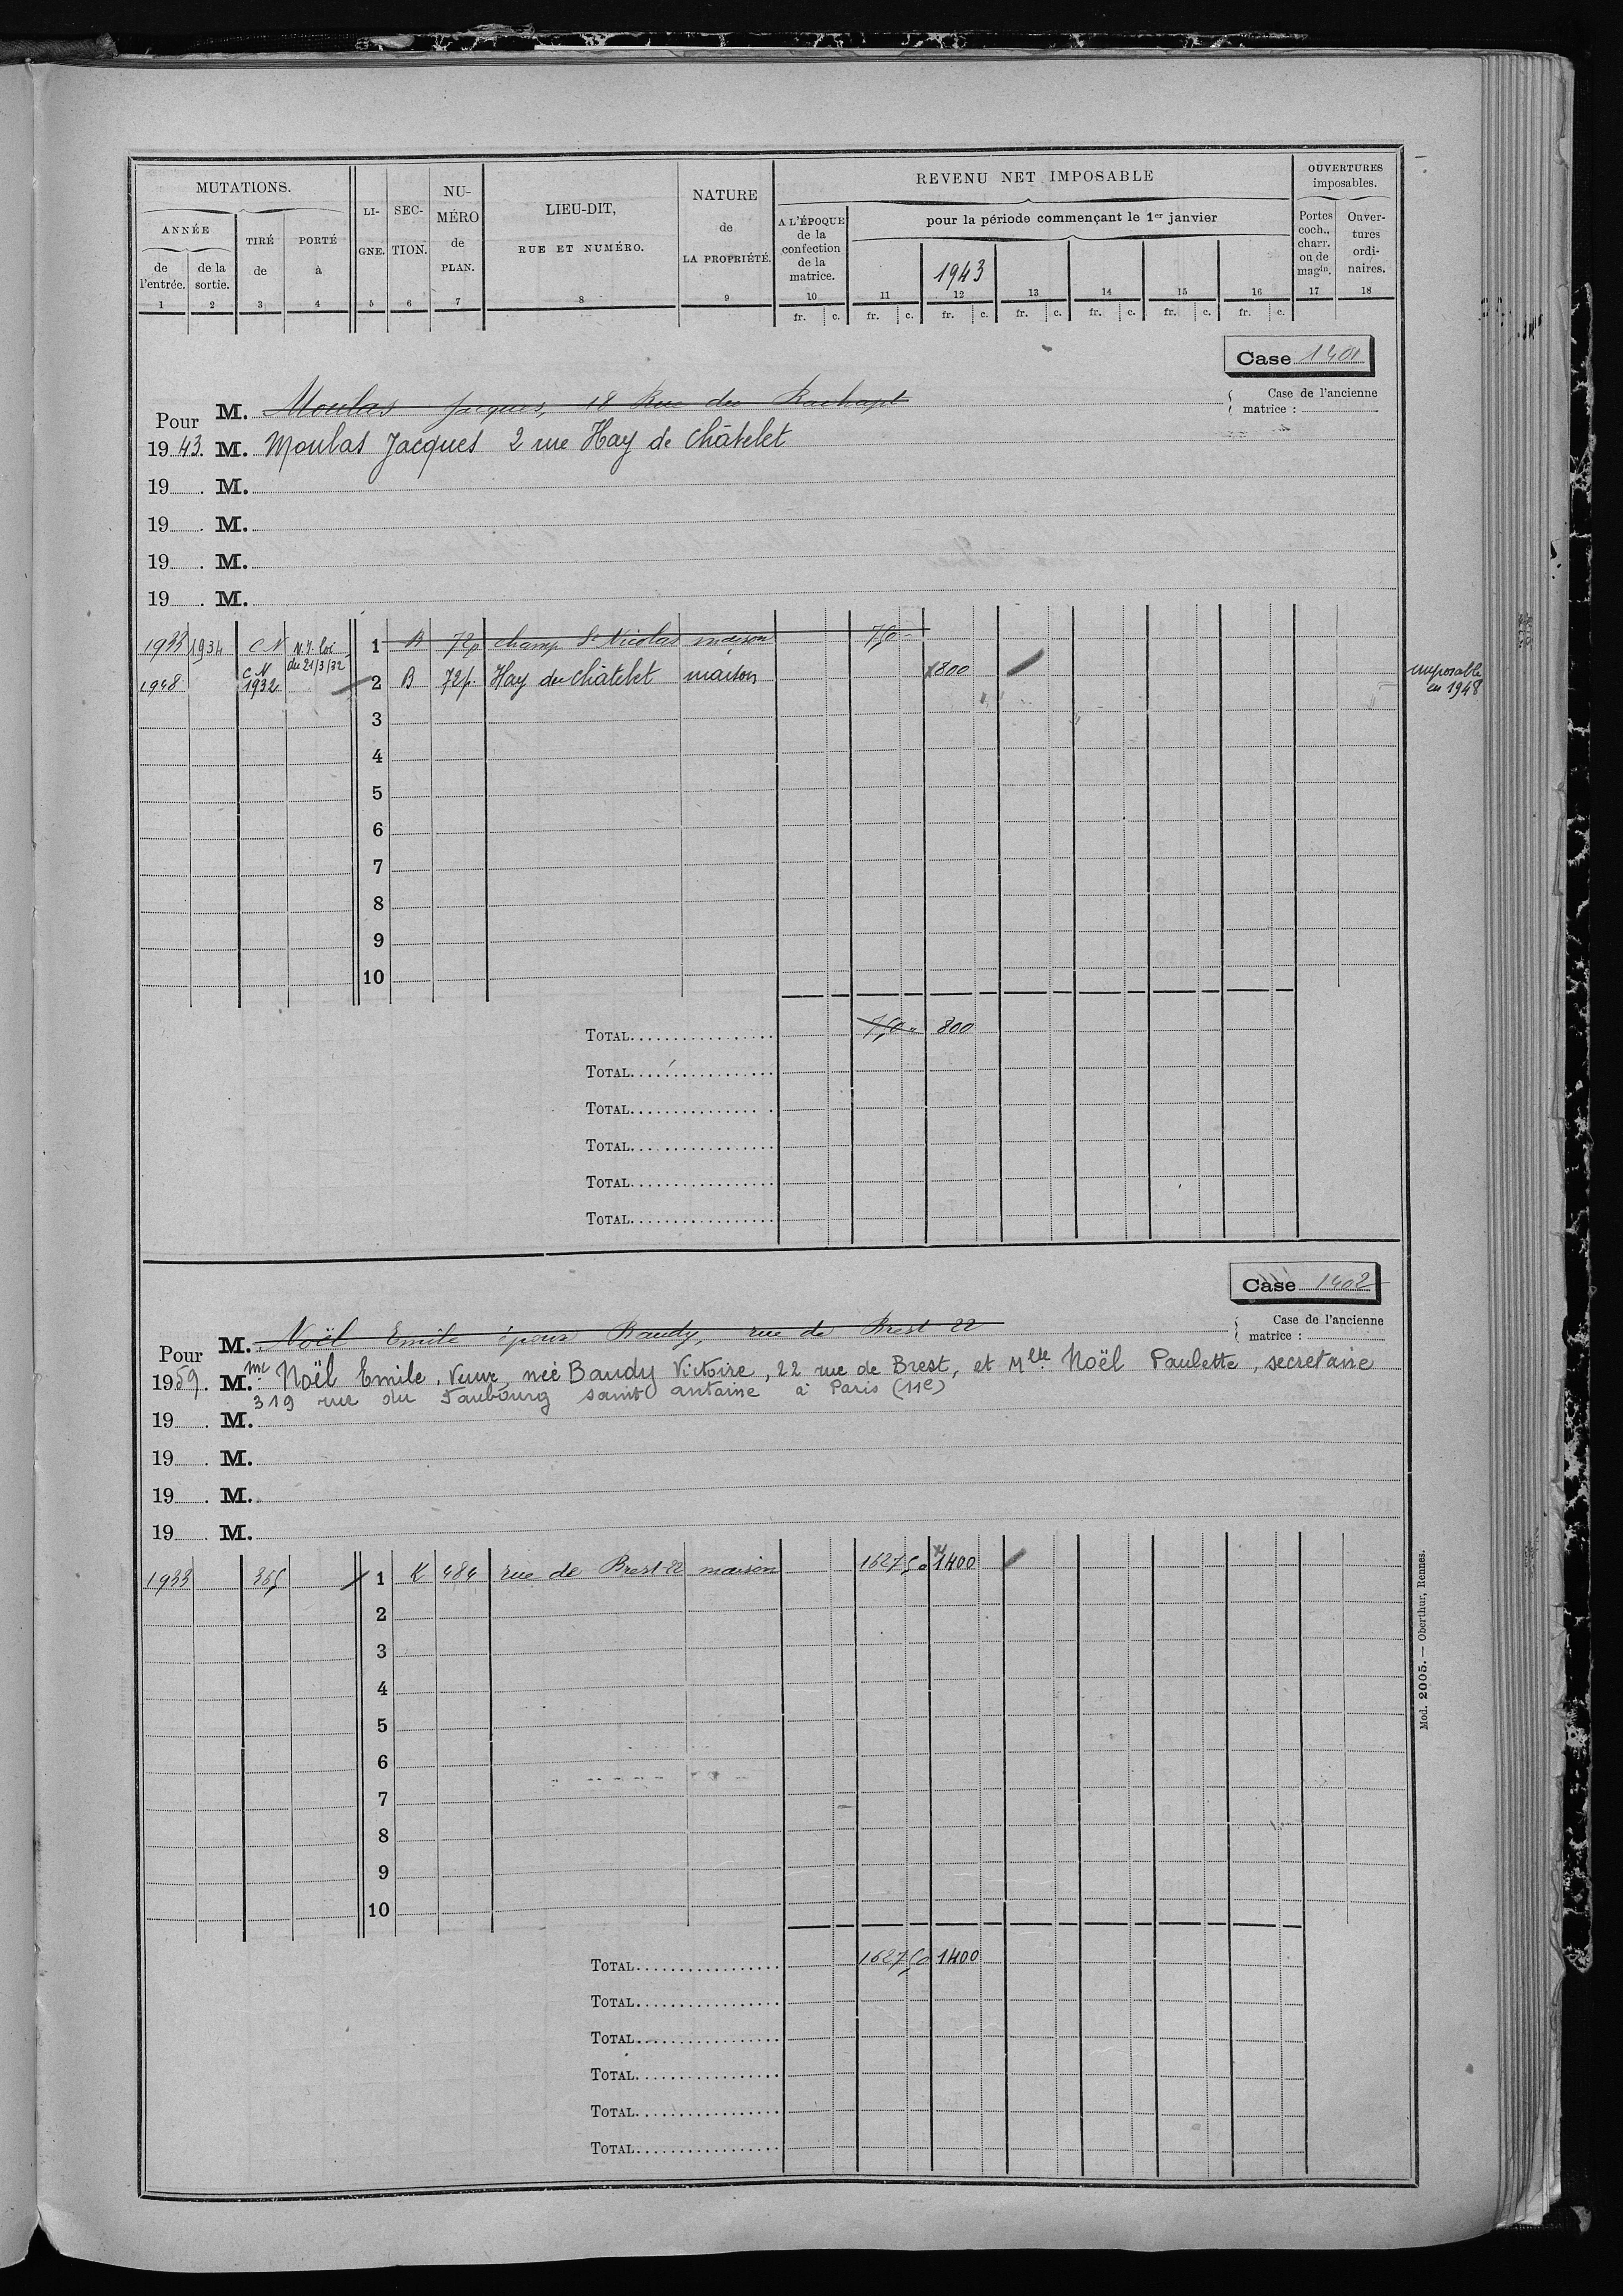 MUTATIONS. LI- SEC- NU- LIEU-DIT, NATURE REVENU NET IMPOSABLE OUVERTURES
imposables.
ANNÉE TIRÉ PORTÉ GNE. TION. MÉRO RUE ET NUMÉRO. de A L'ÉPOQUE pour la période commençant le 1er janvier Portes Ouver-
de de la de à de LA PROPRIÉTÉ. de la coch., tures
l'entrée. sortie. PLAN. confection charr. ordi-
de la ou de naires.
matrice. 1943 magin.
1 2 3 4 5 6 7 8 9 10 11 12 13 14 15 16 17 18
fr. c. fr. c. fr. c. fr. c. fr. c. fr. c. fr. c.
Case 1401
Pour M. Moulas Jacques, 18 Rue du Rachapt
Case de l'ancienne
matrice :
1943. M. Moulas Jacques 2 rue Hay de Châtelet
19 . M.
19 . M.
19 . M.
19 . M.
1933 1934 C N N.I. loi du 21/3/32 1 B 72p champ St Nicolas maison 750 -
1948 C N 1932 2 B 72p. Hay du Châtelet maison 800 imposable
en 1948
3
4
5
6
7
8
9
10
TOTAL 750 " 800
TOTAL
TOTAL
TOTAL
TOTAL
TOTAL
Case 1402
Pour M. Noël Emile époux Baudy, rue de Brest 22
Case de l'ancienne
matrice :
1959. M.me Noël Emile, Veuve, née Baudy Victoire, 22 rue de Brest, et Mlle Noël Paulette, secretaire
319 rue du Faubourg saint antoine à Paris (11e)
19 . M.
19 . M.
19 . M.
19 . M.
1933 365 1 K 484 rue de Brest 22 maison 1627 50 1400
2
3
4
5
6
7
8
9
10
TOTAL 1627 50 1400
TOTAL
TOTAL
TOTAL
TOTAL
TOTAL
Mod. 2005. — Oberthur, Rennes.